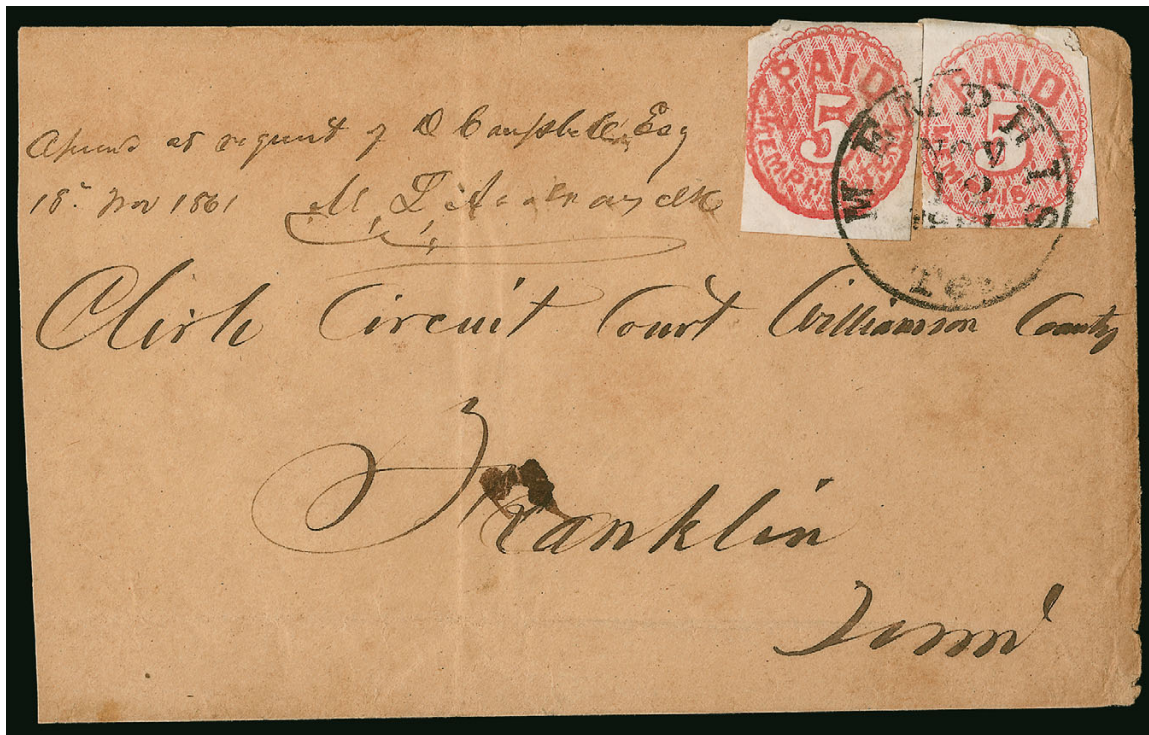 PAID 5 MEMPHIS
PAID 5 MEMPHIS
MEMPHIS
NOV
Ten
at request of D Campbell Esq
18 Nov 1861
Clerk Circuit Court Williamson County
Franklin
Tenn